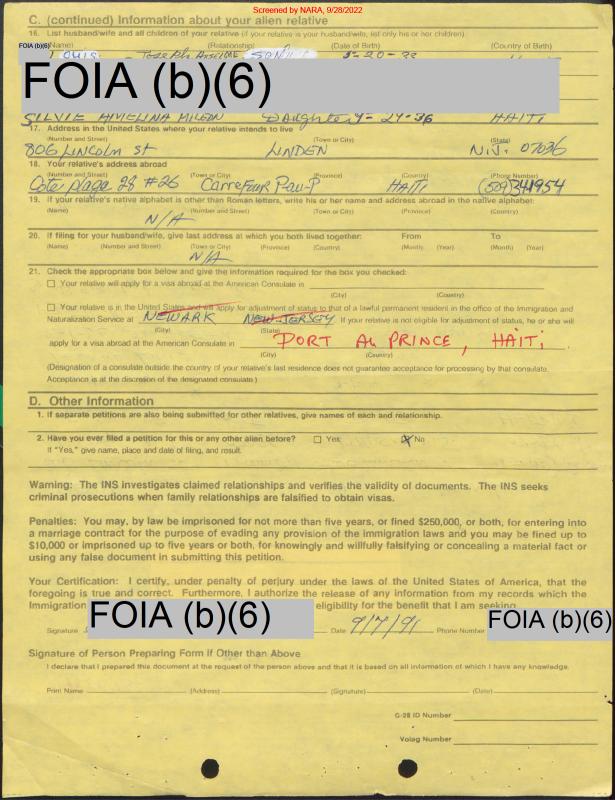 Screened by NARA, 9/28/2022
C. (continued) Information about your alien relative
16. List husband/wife and all children of your relative (if your relative is your husband/wife, list only his or her children).
FOIA (b)(6) (Name) (Relationship) (Date of Birth) (Country of Birth)
Louis Joseph SON 3-20-33
FOIA (b)(6)
SILVIE AMELINA Daughter 4-24-36 HAITI
17. Address in the United States where your relative intends to live
(Number and Street) (Town or City) (State)
806 LINCOLN St LINDEN N.J. 07036
18. Your relative's address abroad
(Number and Street) (Town or City) (Province) (Country) (Phone Number)
Cote plage 28 #26 Carrefour P-au-P HAITI (509)341954
19. If your relative's native alphabet is other than Roman letters, write his or her name and address abroad in the native alphabet:
(Name) (Number and Street) (Town or City) (Province) (Country)
N/A
20. If filing for your husband/wife, give last address at which you both lived together: From To
(Name) (Number and Street) (Town or City) (Province) (Country) (Month) (Year) (Month) (Year)
N/A
21. Check the appropriate box below and give the information required for the box you checked:
Your relative will apply for a visa abroad at the American Consulate in
(City) (Country)
Your relative is in the United States and will apply for adjustment of status to that of a lawful permanent resident in the office of the Immigration and
Naturalization Service at NEWARK NEW-JERSEY If your relative is not eligible for adjustment of status, he or she will
(City) (State)
apply for a visa abroad at the American Consulate in PORT AU PRINCE, HAITI
(City) (Country)
(Designation of a consulate outside the country of your relative's last residence does not guarantee acceptance for processing by that consulate.
Acceptance is at the discretion of the designated consulate.)
D. Other Information
1. If separate petitions are also being submitted for other relatives, give names of each and relationship.
2. Have you ever filed a petition for this or any other alien before? Yes X No
If "Yes," give name, place and date of filing, and result.
Warning: The INS investigates claimed relationships and verifies the validity of documents. The INS seeks
criminal prosecutions when family relationships are falsified to obtain visas.
Penalties: You may, by law be imprisoned for not more than five years, or fined $250,000, or both, for entering into
a marriage contract for the purpose of evading any provision of the immigration laws and you may be fined up to
$10,000 or imprisoned up to five years or both, for knowingly and willfully falsifying or concealing a material fact or
using any false document in submitting this petition.
Your Certification: I certify, under penalty of perjury under the laws of the United States of America, that the
foregoing is true and correct. Furthermore, I authorize the release of any information from my records which the
Immigration FOIA (b)(6) eligibility for the benefit that I am seeking.
Signature Date 9/7/91 Phone Number FOIA (b)(6)
Signature of Person Preparing Form if Other than Above
I declare that I prepared this document at the request of the person above and that it is based on all information of which I have any knowledge.
Print Name (Address) (Signature) (Date)
G-28 ID Number
Volag Number